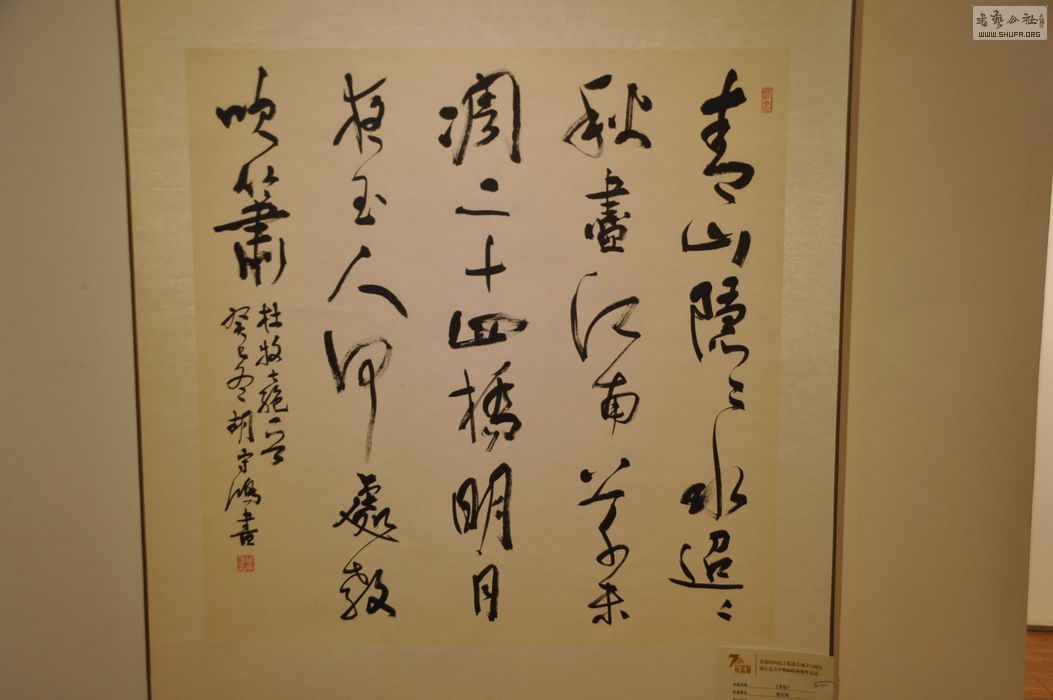 青山隱〻水迢〻
秋盡江南草未
凋二十四橋明月
夜玉人何處教
吹簫
杜牧七絕一首
癸巳冬胡守鴻書
書藝公社
WWW.SHUFA.ORG
7
作品展